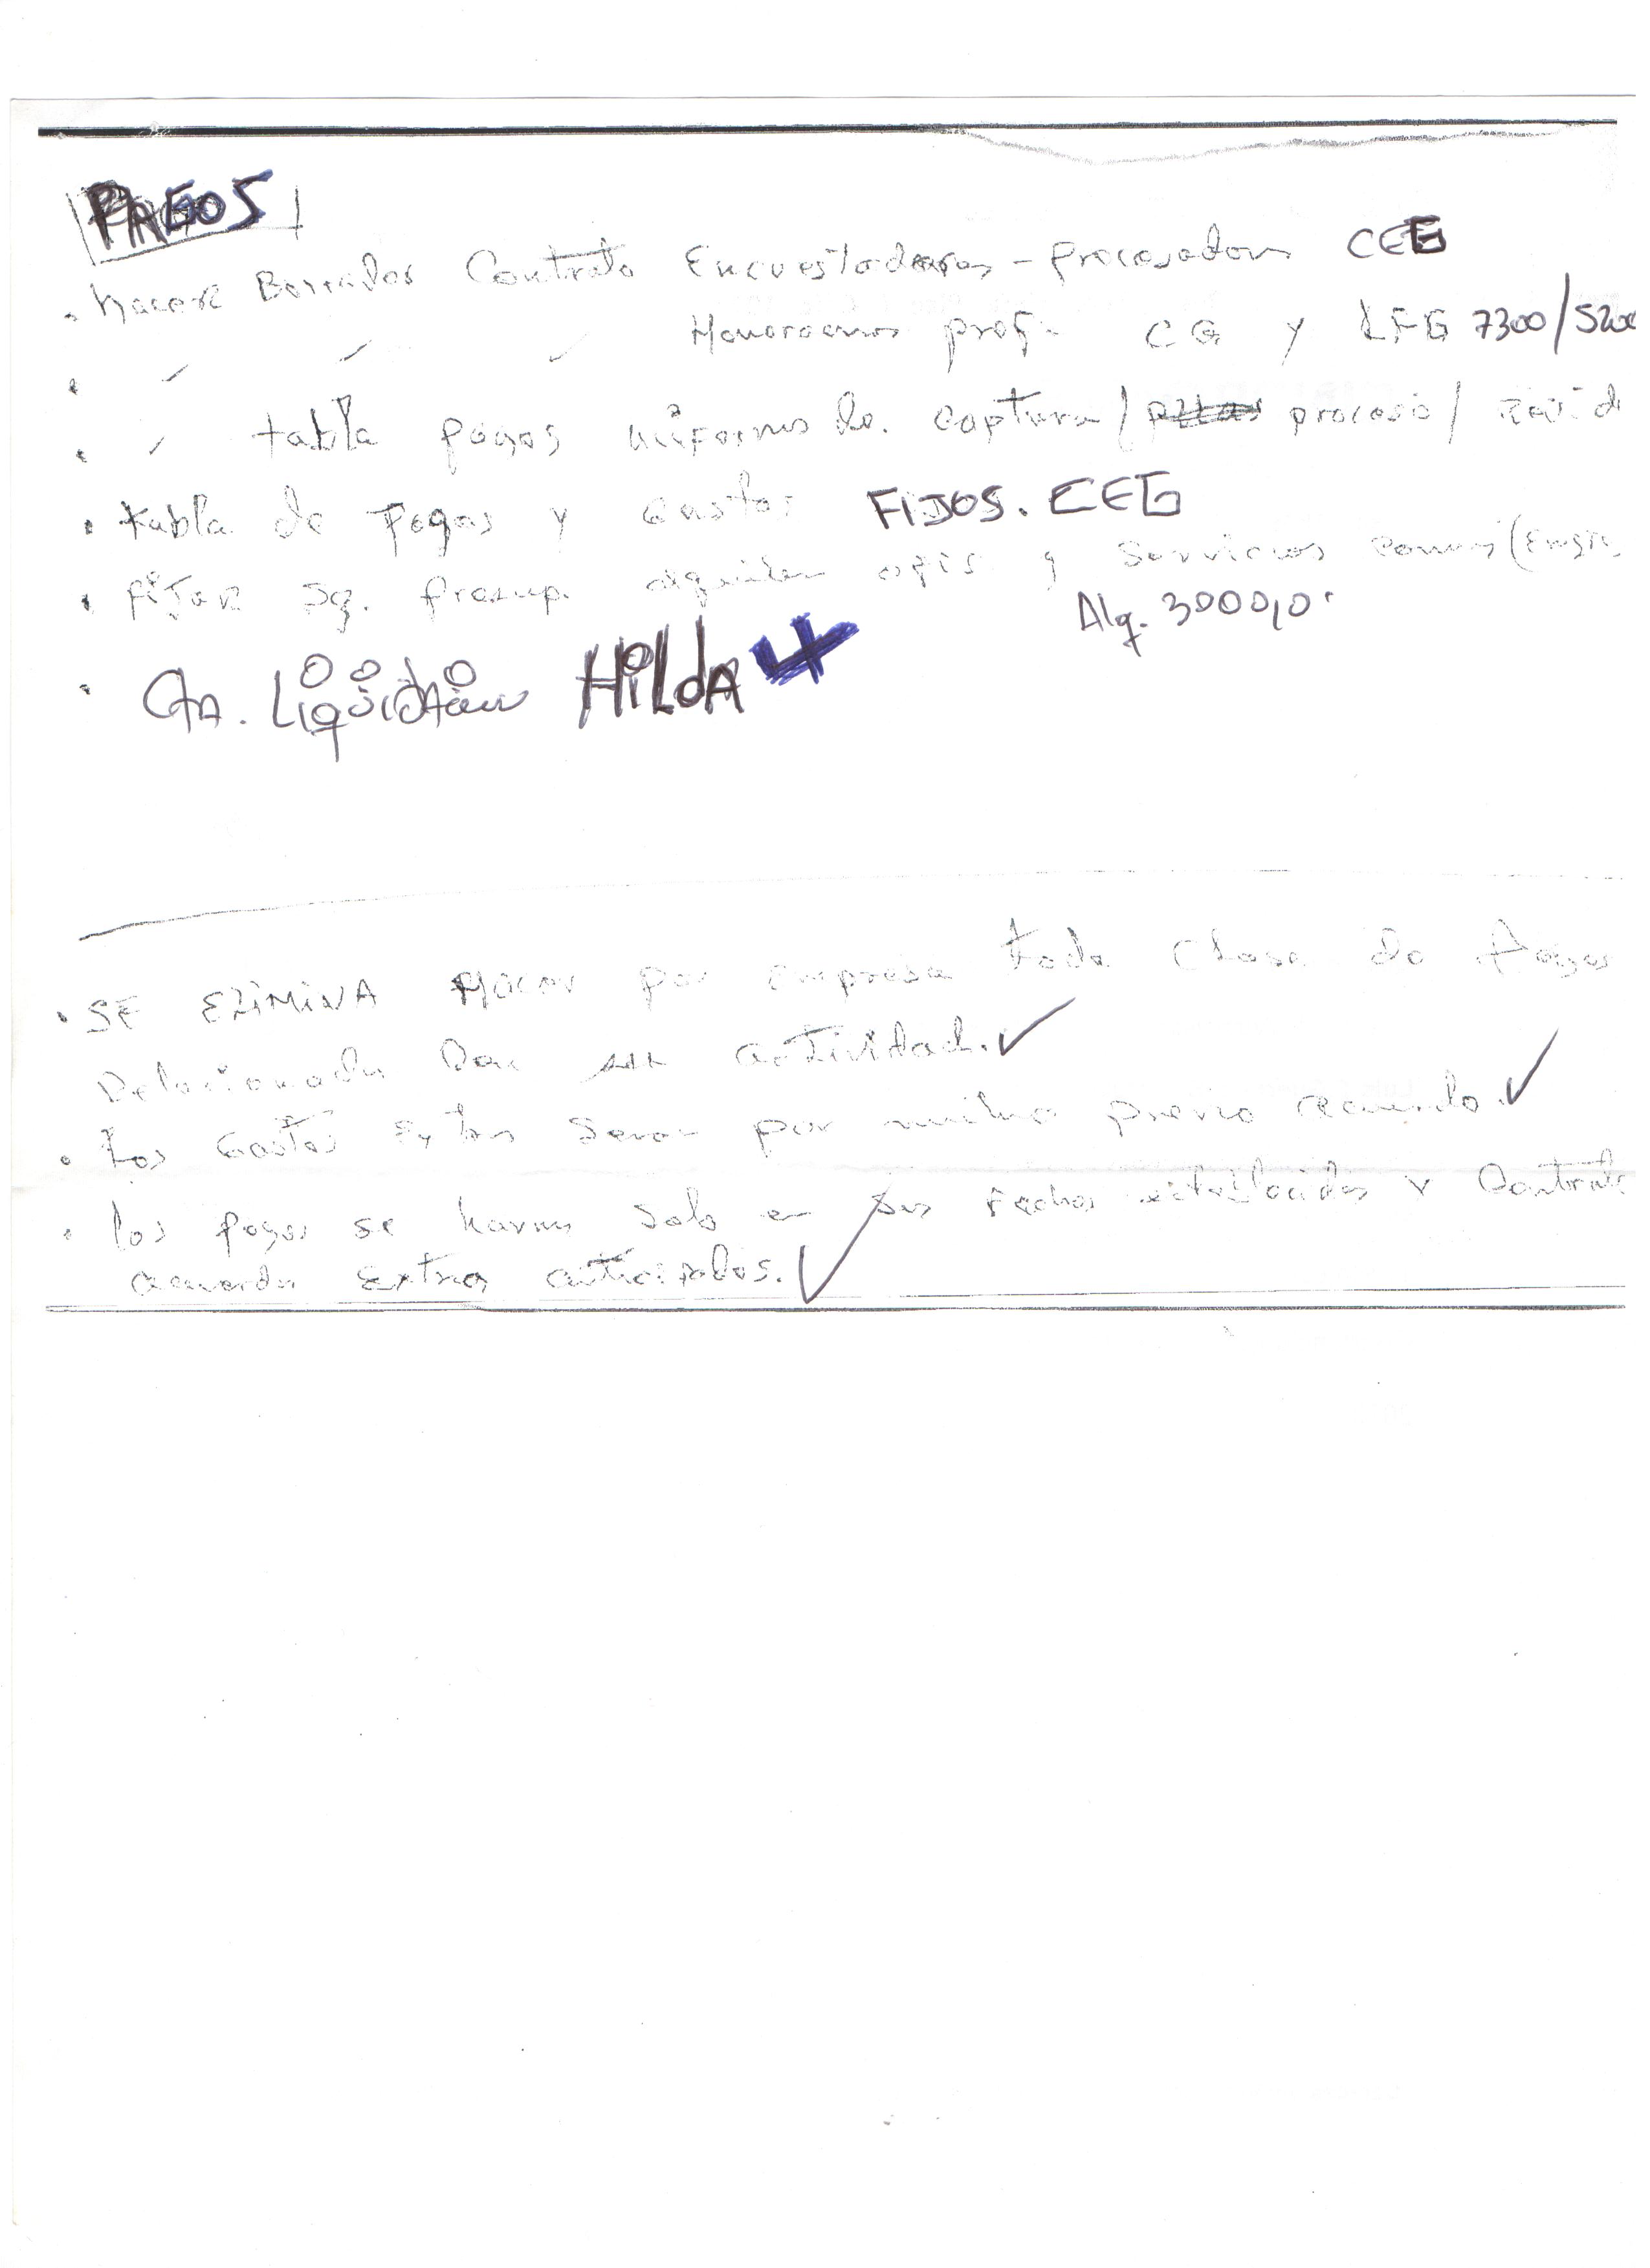 PAGOS
• hacer Borrador Contrato Encuestadoras - procesadora CEG
• " " " Honorarios prof. CG y LFG 7300/5200
• " tabla pagos uniforme de captura / proceso /
• tabla de pagos y Gastos FIJOS. CEG
• fijar pq. presup. alquiler ofis. y Servicios
Alq. 3000,0
• Cta. Liquidación HILDA
• SE ELIMINA Hacer por empresa toda Clase de Pagos
Relacionada con su actividad. ✓
• Los Gastos Extras Seran por mutuo previo acuerdo. ✓
• los pagos se haran solo en sus fechas establecidas y Contrato
acuerdo extra anticipados. ✓